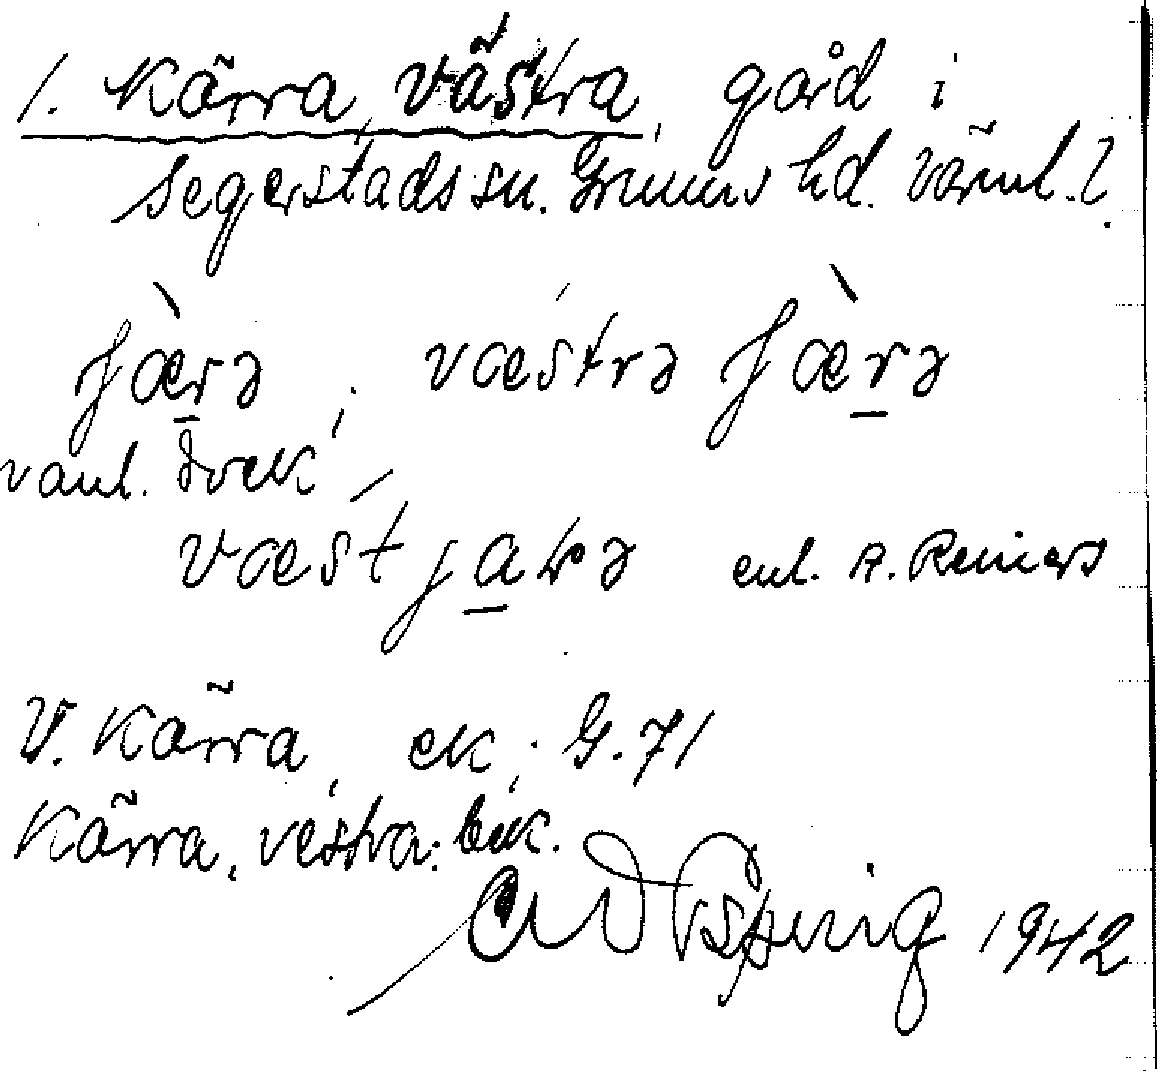 1. Kärra, västra, gård i
Segerstads sn. Grums hd. Värml.
ʃæ̀r̲ə ; væstrə ʃæ̀r̲ə
vanl.
væstʃa̲rə enl. A. Reiners
V. Kärra, ek; G. 71
Kärra, vestra:
1942